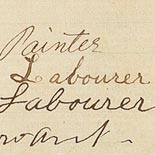 Painter
Labourer
Labourer